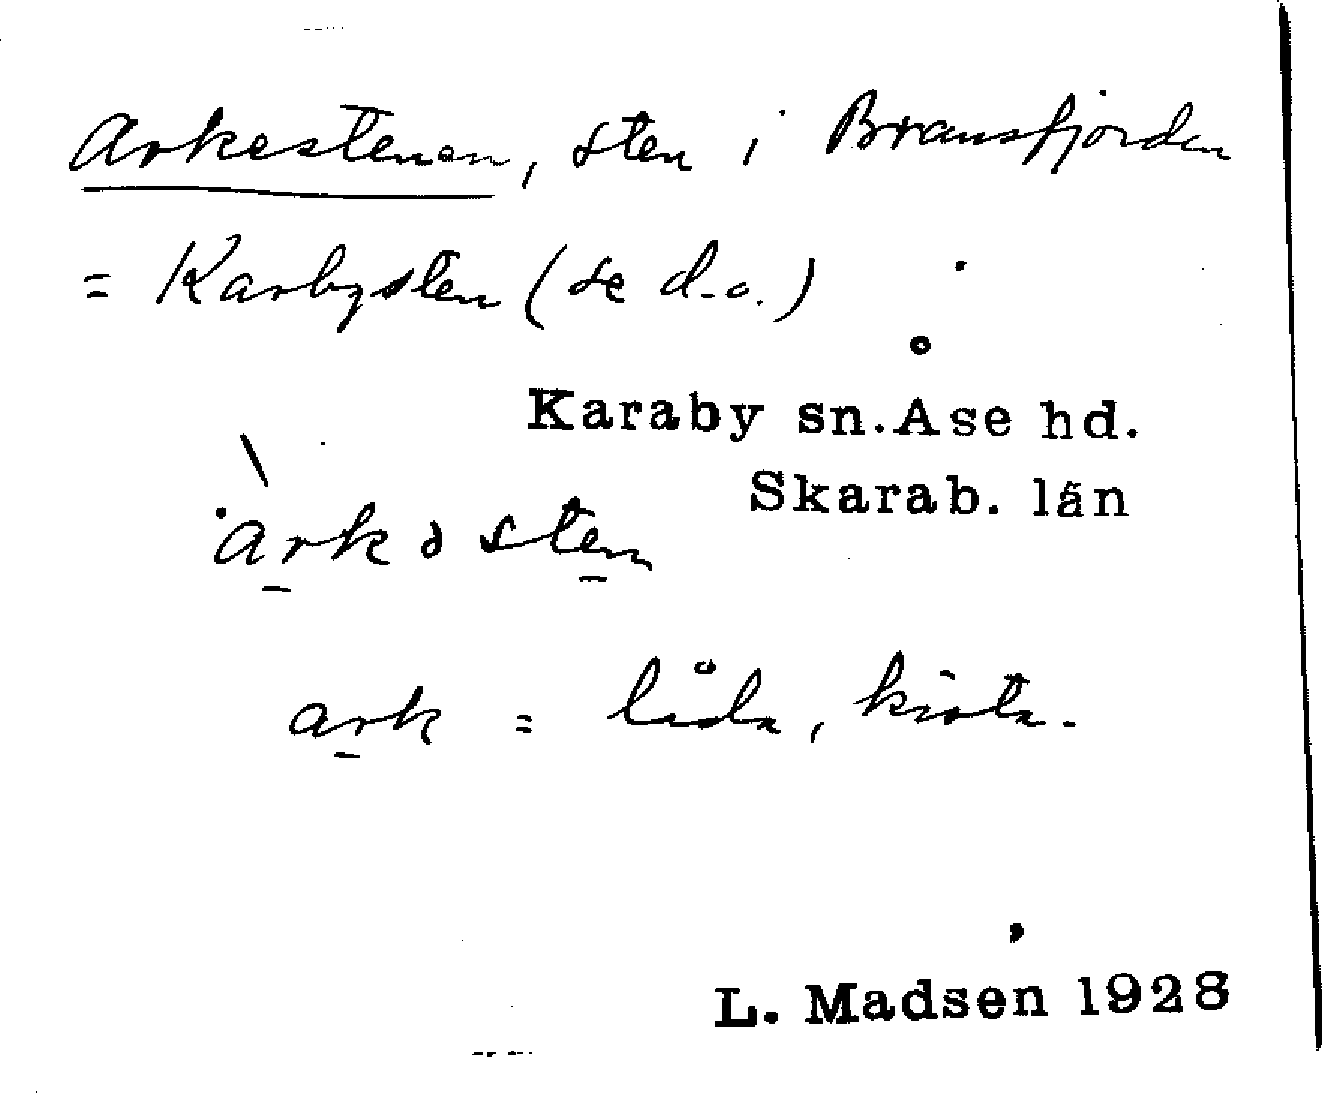 Arkestenen, sten i Bransfjorden
= Karbysten (se d.o.)
Karaby sn. Åse hd.
Skarab. län
arkə sten
ark = låda, kista.
L. Madsen 1928